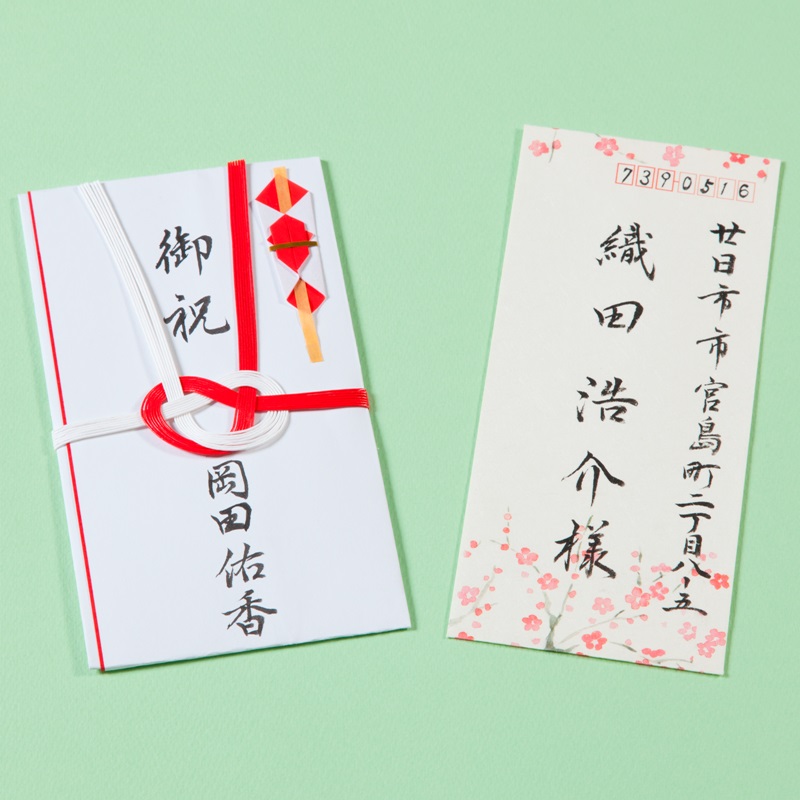 御祝
岡田佑香
7390516
廿日市市宮島町二丁目八-五
織田浩介様